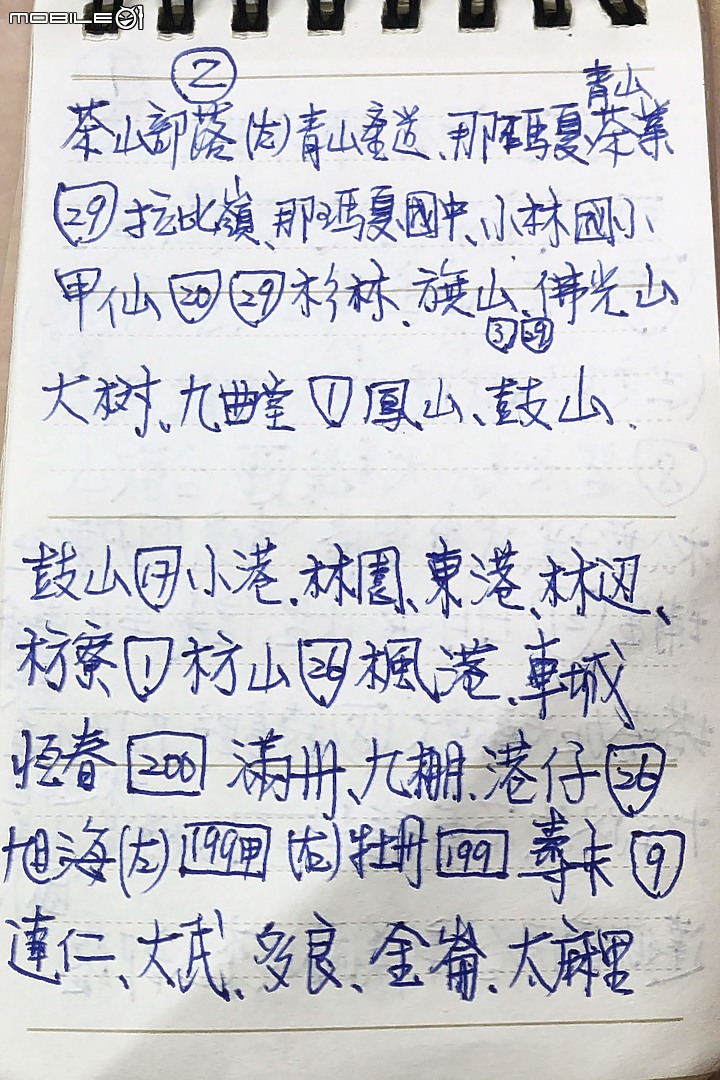 MOBILE01
②
青山
茶山部落(左)青山產道、那瑪夏茶業
29 拉比嶺、那瑪夏國中、小林國小
甲仙 20 29 杉林、旗山、佛光山
3 29
大树、九曲堂 1 鳳山、鼓山、
鼓山 17 小港、林園、東港、林边、
枋寮 1 枋山 26 楓港、車城
恒春 200 滿州、九棚、港仔 26
旭海(左) 199甲 (右)牡丹 199 壽卡 9
達仁、大武、多良、金崙、太麻里